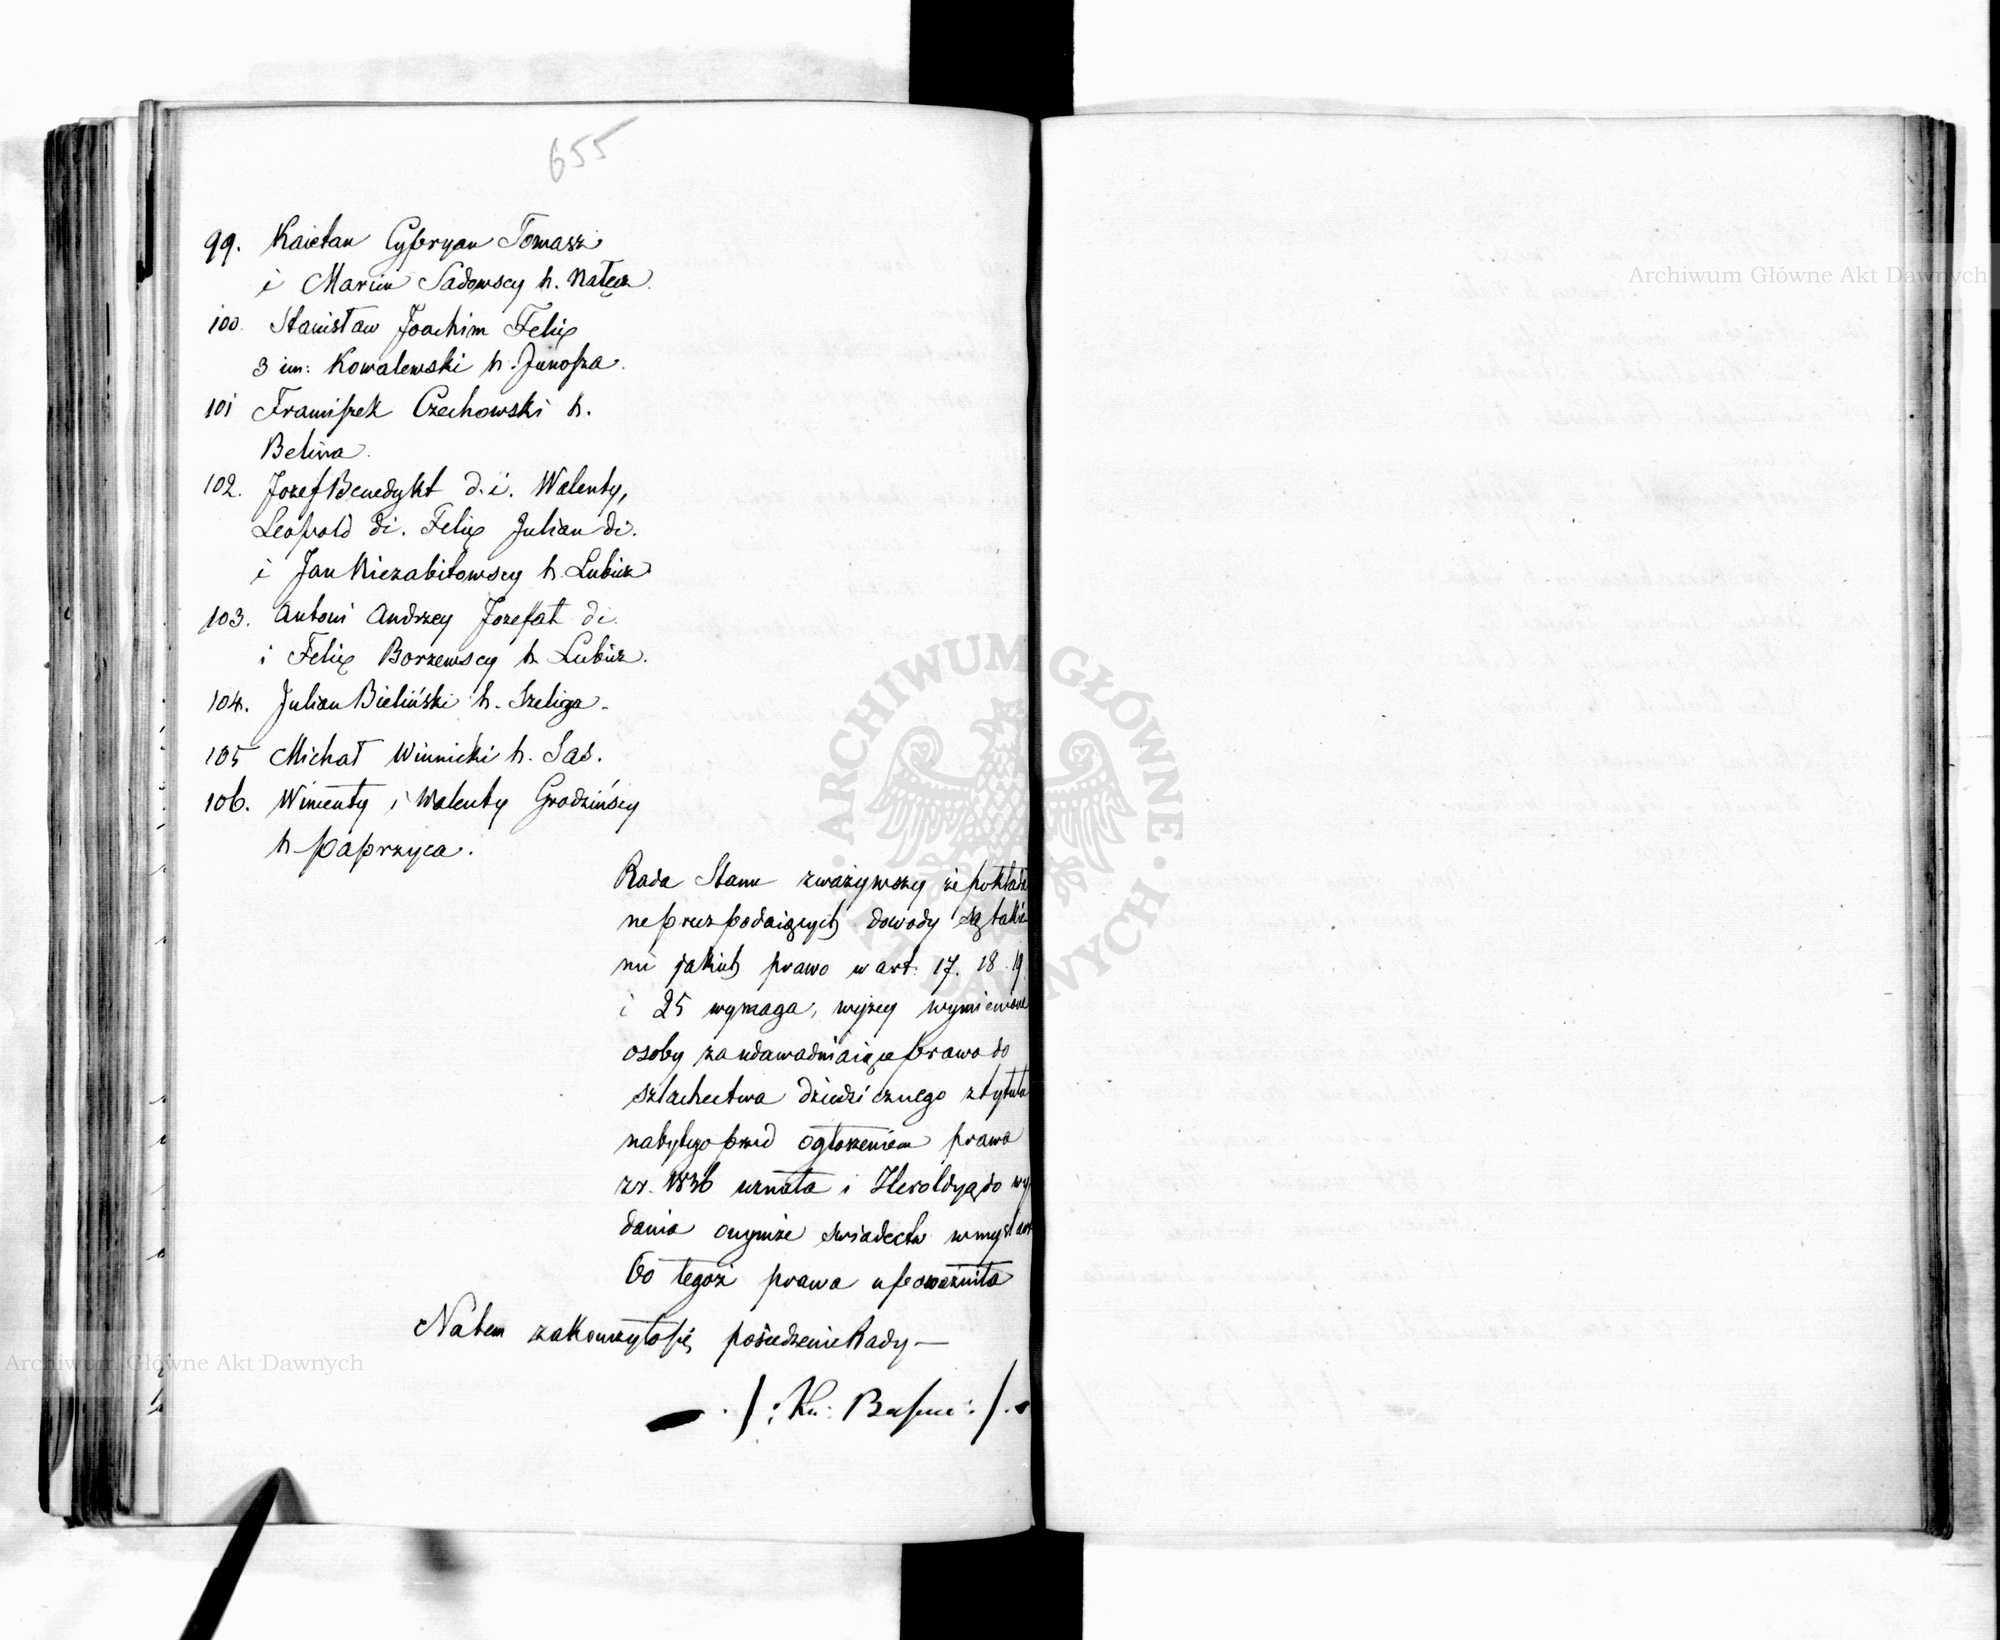 655
99. Kaietan Cypryan Tomasz
i Marcin Sadowscy h. Nałęcz.
100. Stanisław Joachim Felix
3 im: Kowalewski h. Junosza.
101 Franciszek Czechowski h.
Belina.
102. Jozef Benedykt d.i. Walenty,
Leopold di. Felix Julian di.
i Jan Niezabitowscy h. Lubicz
103. Antoni Andrzey Jozefat di.
i Felix Borzewscy h. Lubicz.
104. Julian Bieliński h. Szeliga.
105 Michał Winnicki h. Sas.
106. Wincenty i Walenty Grodzińscy
h. Paprzyca.
Rada Stanu zważywszy że pokłada
ne przez podaiących dowody są takie
mi jakich prawo w art. 17. 18. 19.
i 25 wymaga, wyżey wymienione
osoby za udawadniaiące prawo do
szlachectwa dziedzicznego z tytułu
nabytego przed ogłoszeniem prawa
z r. 1836 uznała i Heroldyą do wy
dania onymże świadectw w mysl art
60 tegoż prawa upoważniła
Na tem zakończyło się posiedzenie Rady —
Archiwum Główne Akt Dawnych
Archiwum Główne Akt Dawnych
ARCHIWUM GŁÓWNE AKT DAWNYCH